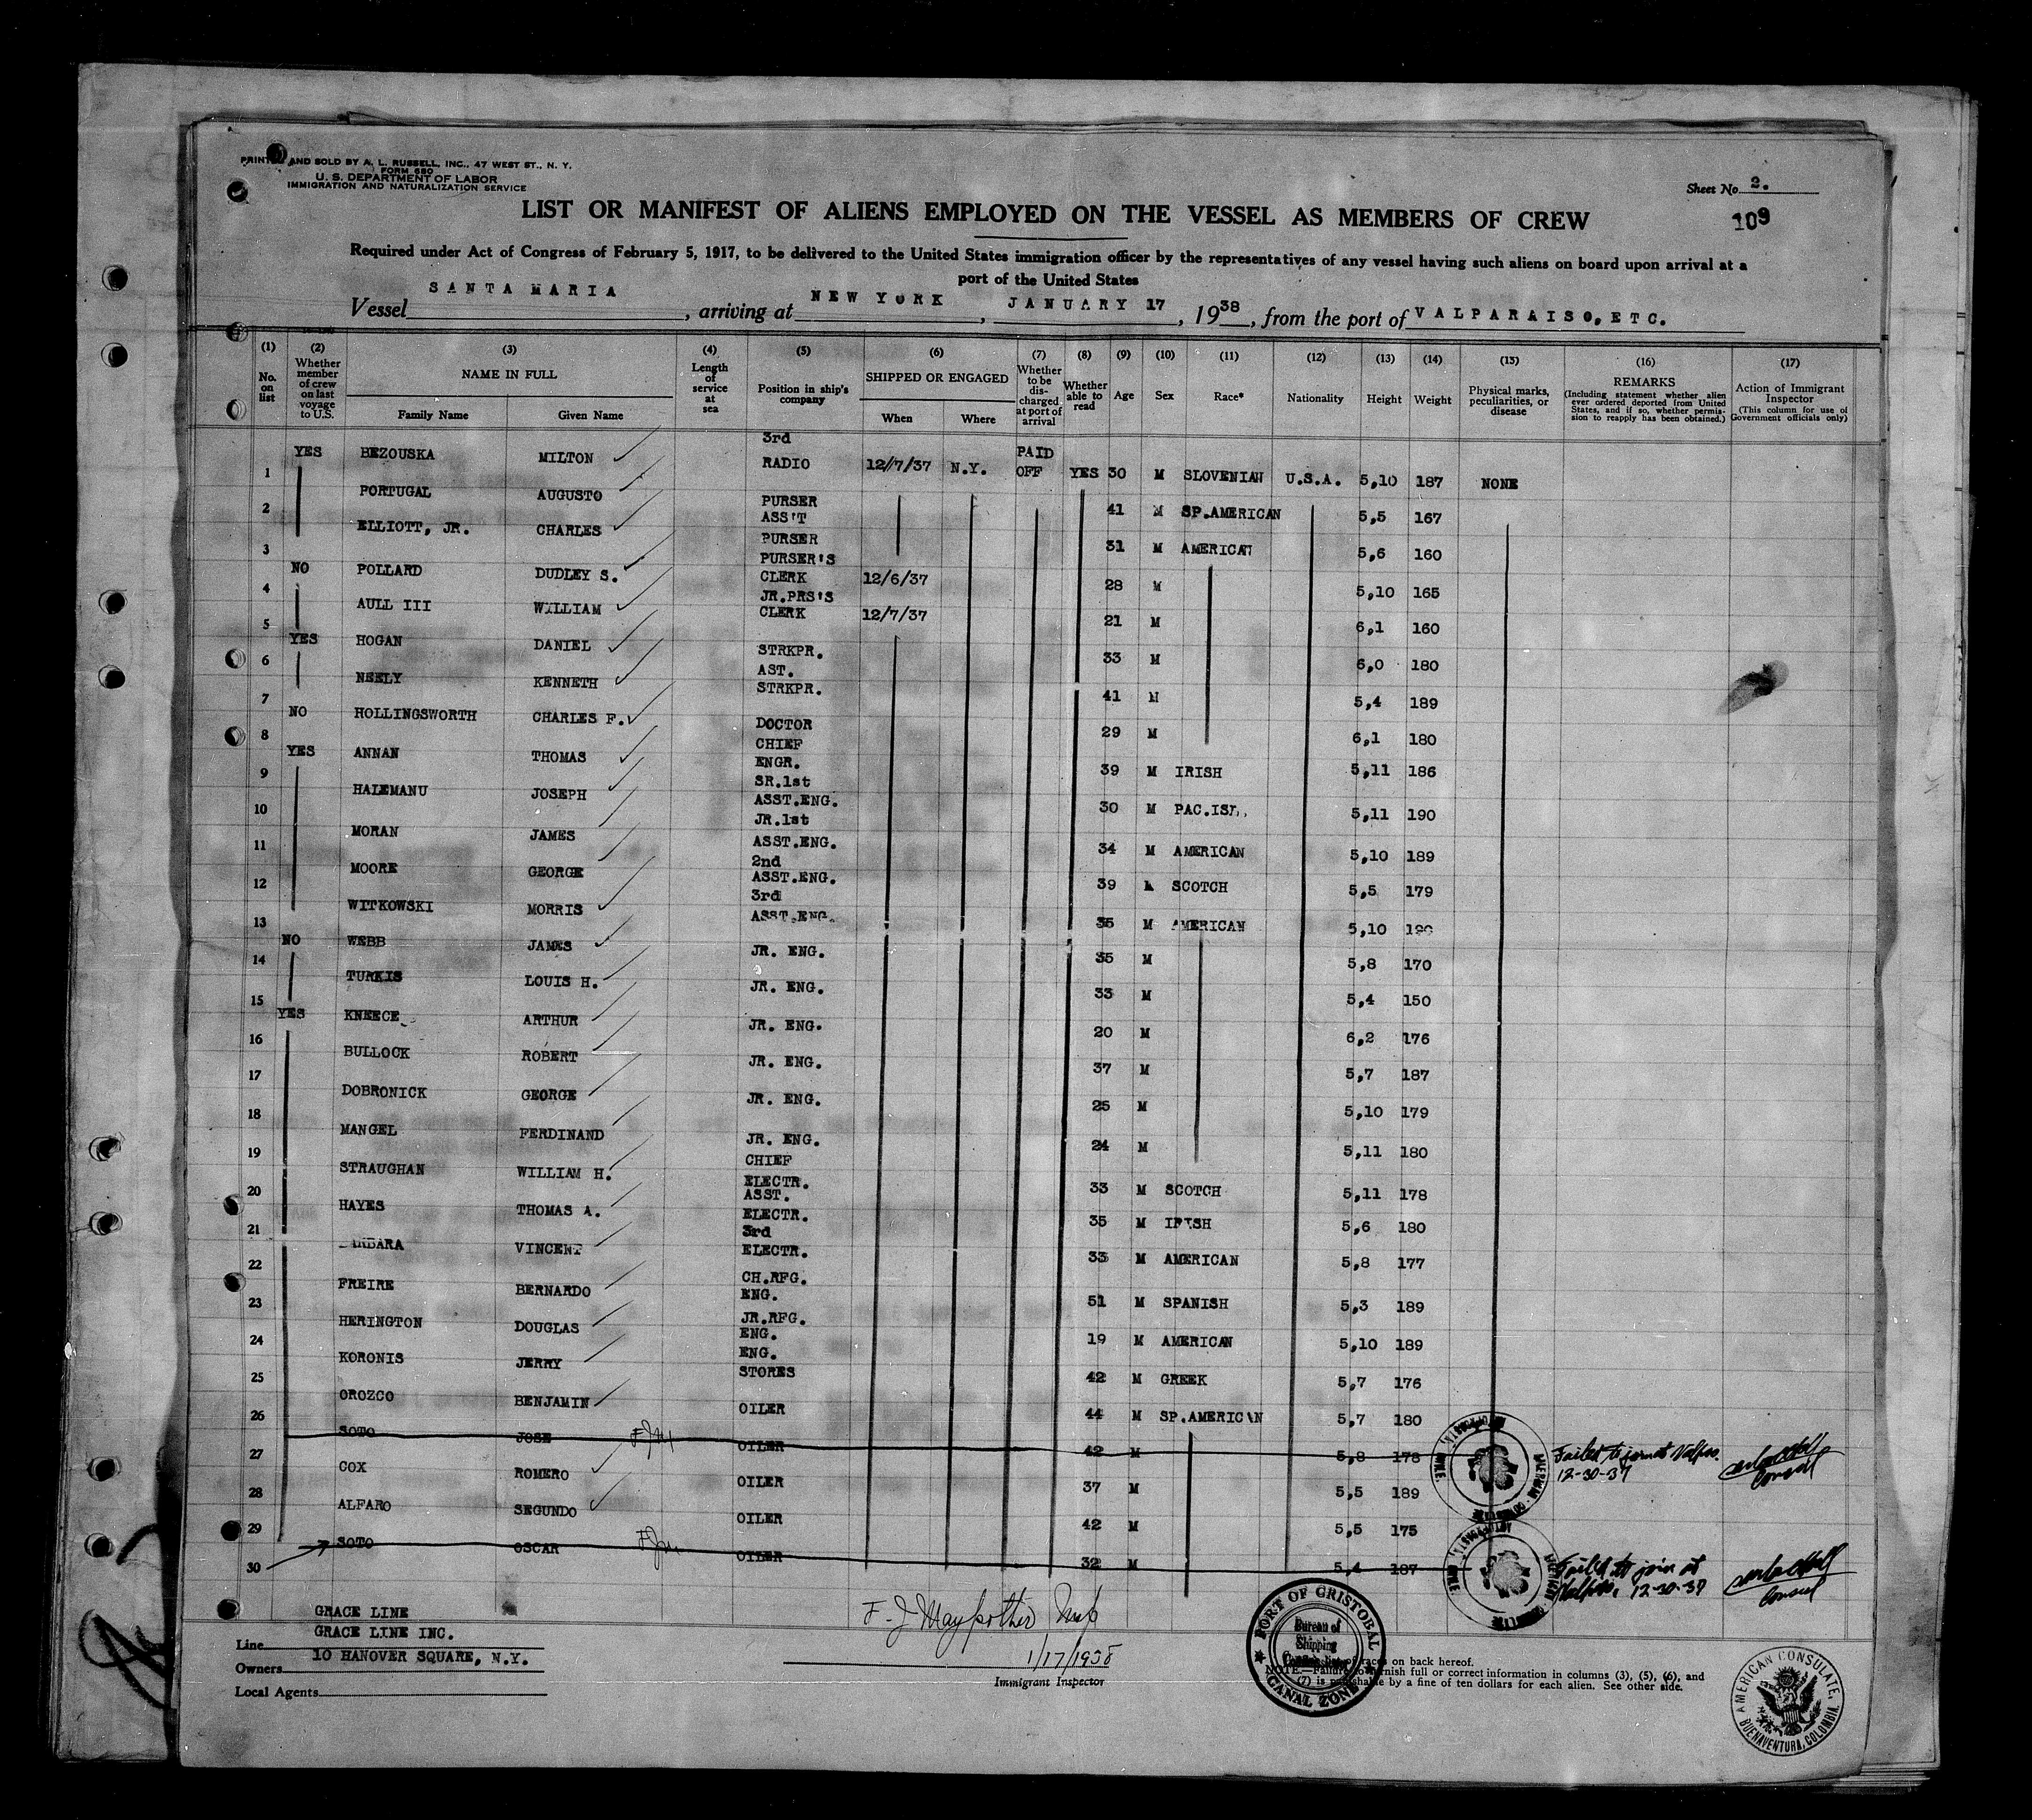 PRINTED AND SOLD BY A. L. RUSSELL, INC., 47 WEST ST., N. Y.
FORM 680
U. S. DEPARTMENT OF LABOR
IMMIGRATION AND NATURALIZATION SERVICE
Sheet No. 2.
109
LIST OR MANIFEST OF ALIENS EMPLOYED ON THE VESSEL AS MEMBERS OF CREW
Required under Act of Congress of February 5, 1917, to be delivered to the United States immigration officer by the representatives of any vessel having such aliens on board upon arrival at a
port of the United States
Vessel SANTA MARIA, arriving at NEW YORK, JANUARY 17, 1938, from the port of VALPARAISO, ETC.
(1) No. on list
(2) Whether member of crew on last voyage to U.S.
(3) NAME IN FULL
Family Name Given Name
(4) Length of service at sea
(5) Position in ship's company
(6) SHIPPED OR ENGAGED
When Where
(7) Whether to be discharged at port of arrival
(8) Whether able to read
(9) Age
(10) Sex
(11) Race*
(12) Nationality
(13) Height
(14) Weight
(15) Physical marks, peculiarities, or disease
(16) REMARKS
(Including statement whether alien ever ordered deported from United States, and if so, whether permission to reapply has been obtained.)
(17) Action of Immigrant Inspector
(This column for use of Government officials only)
1 YES BEZOUSKA MILTON 3rd RADIO 12/7/37 N.Y. PAID OFF YES 30 M SLOVENIAN U.S.A. 5,10 187 NONE
2 PORTUGAL AUGUSTO PURSER 41 M SP.AMERICAN 5,5 167
3 ELLIOTT, JR. CHARLES ASS'T PURSER 31 M AMERICAN 5,6 160
4 NO POLLARD DUDLEY S. PURSER'S CLERK 12/6/37 28 M 5,10 165
5 AULL III WILLIAM JR.PRS'S CLERK 12/7/37 21 M 6,1 160
6 YES HOGAN DANIEL STRKPR. 33 M 6,0 180
7 NEELY KENNETH AST. STRKPR. 41 M 5,4 189
8 NO HOLLINGSWORTH CHARLES F. DOCTOR 29 M 6,1 180
9 YES ANNAN THOMAS CHIEF ENGR. 39 M IRISH 5,11 186
10 HALEMANU JOSEPH SR.1st ASST.ENG. 30 M PAC.ISL. 5,11 190
11 MORAN JAMES JR.1st ASST.ENG. 34 M AMERICAN 5,10 189
12 MOORE GEORGE 2nd ASST.ENG. 39 M SCOTCH 5,5 179
13 WITKOWSKI MORRIS 3rd ASST.ENG. 35 M AMERICAN 5,10 190
14 NO WEBB JAMES JR. ENG. 35 M 5,8 170
15 TURKIS LOUIS H. JR. ENG. 33 M 5,4 150
16 YES KNEECE ARTHUR JR. ENG. 20 M 6,2 176
17 BULLOCK ROBERT JR. ENG. 37 M 5,7 187
18 DOBRONICK GEORGE JR. ENG. 25 M 5,10 179
19 MANGEL FERDINAND JR. ENG. 24 M 5,11 180
20 STRAUGHAN WILLIAM H. CHIEF ELECTR. 33 M SCOTCH 5,11 178
21 HAYES THOMAS A. ASST. ELECTR. 35 M IRISH 5,6 180
22 BARBARA VINCENT 3rd ELECTR. 33 M AMERICAN 5,8 177
23 FREIRE BERNARDO CH.RFG. ENG. 51 M SPANISH 5,3 189
24 HERINGTON DOUGLAS JR.RFG. ENG. 19 M AMERICAN 5,10 189
25 KORONIS JERRY ENG. STORES 42 M GREEK 5,7 176
26 OROZCO BENJAMIN OILER 44 M SP.AMERICAN 5,7 180
27 SOTO JOSE OILER 42 M 5,8 178 Failed to join at Valpso. 12-30-37 Consul
28 COX ROMERO OILER 37 M 5,5 189
29 ALFARO SEGUNDO OILER 42 M 5,5 175
30 SOTO OSCAR OILER 32 M 5,4 187 Failed to join at Valpso, 12-30-37 Consul
GRACE LINE
Line GRACE LINE INC.
Owners 10 HANOVER SQUARE, N.Y.
Local Agents
1/17/1938
Immigrant Inspector
PORT OF CRISTOBAL
Bureau of
Shipping
CANAL ZONE
list of races on back hereof.
NOTE.—Failure to furnish full or correct information in columns (3), (5), (6), and
(7) is punishable by a fine of ten dollars for each alien. See other side.
AMERICAN CONSULATE,
BUENAVENTURA, COLOMBIA.